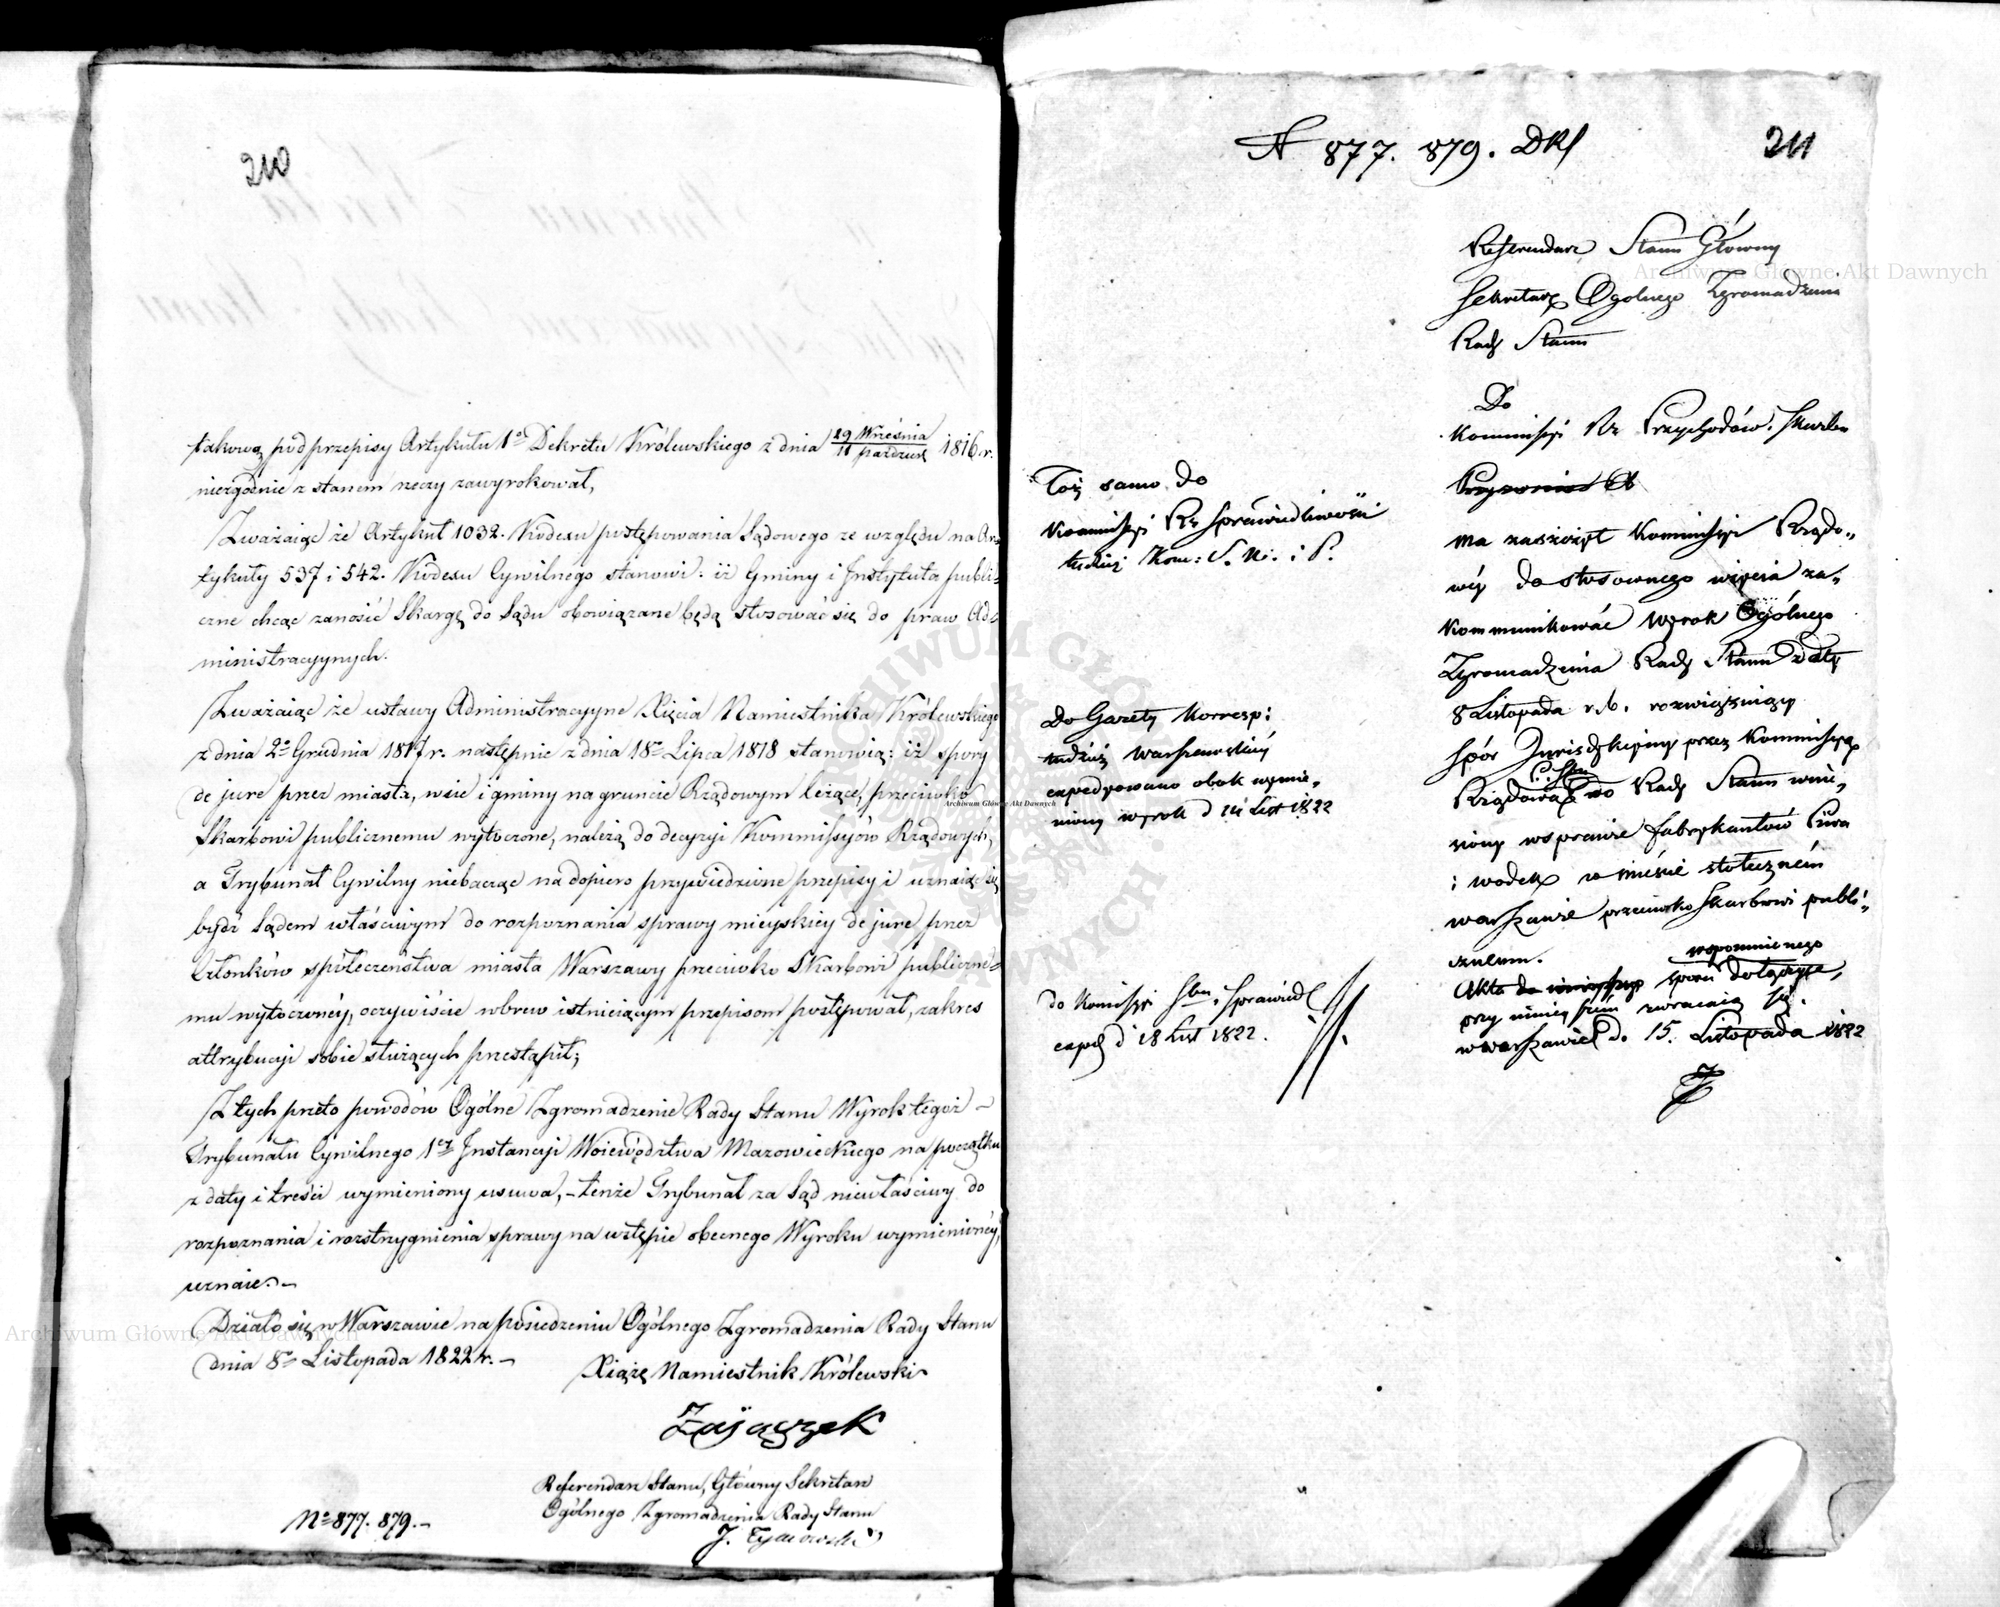 210
takową pod przepisy Artykułu 1º Dekretu Królewskiego z dnia 29 Września / 11 Paździer 1816 r.
niezgodnie z stanem rzeczy zawyrokował,
Zważaiąc że Artykuł 1032. Kodexu postępowania Sądowego ze względu na Ar-
tykuły 537 i 542. Kodexu Cywilnego stanowi: iż Gminy i Instytuta publi-
czne chcąc zanosić Skargę do Sądu obowiązane będą stosować się do praw Ad-
ministracyynych.
Zważaiąc że ustawy Administracyyne Xięcia Namiestnika Królewskiego
z dnia 2º Grudnia 1817 r. następnie z dnia 18º Lipca 1818 stanowią: iż spory
de jure przez miasta, wsie i gminy na gruncie Rządowym leżące, przeciwko
Skarbowi publicznemu wytoczone, należą do decyzyi Kommissyów Rządowych,
a Trybunał Cywilny niebacząc na dopiero przywiedzione przepisy i uznaiąc się
bydź Sądem właściwym do rozpoznania sprawy mieyskiey de jure przez
Członków społeczeństwa miasta Warszawy przeciwko Skarbowi publiczne-
mu wytoczonéy, oczywiście wbrew istnieiącym przepisom postępował, zakres
attrybucyi sobie służących przestąpił;
Z tych przeto powodów Ogólne Zgromadzenie Rady Stanu Wyrok tegoż –
Trybunału Cywilnego 1éy Instancyi Woiewództwa Mazowieckiego na początku
z daty i treści wymieniony usuwa, – tenże Trybunał za Sąd niewłaściwy do
rozpoznania i rozstrzygnienia sprawy na wstępie obecnego Wyroku wymienionéy,
uznaie. –
Działo się w Warszawie na posiedzeniu Ogólnego Zgromadzenia Rady Stanu
dnia 8º Listopada 1822 r. –
Xiążę Namiestnik Królewski
Zajączek
Referendarz Stanu, Główny Sekretarz
Ogólnego Zgromadzenia Rady Stanu
J. Tymowski
Nº 877. 879. –
N 877. 879. DKS
211
Referendarz Stanu Główny
Sekretarz Ogolnego Zgromadzenia
Rady Stanu
Do
Kommissyi Rz Przychodów i Skarbu
ma zaszczyt Kommissyi Rządo-
wéy do stosownego użycia za-
kommunikować Wyrok Ogólnego
Zgromadzenia Rady Stanu z daty
8 Listopada r. b. rozwiązuiący
spór Jurisdykcyiny przez Kommissyą
Rządową P. Sbu do Rady Stanu wnie-
siony w sprawie fabrykantów Piwa
i wodek w mieście stołeczném
Warszawie przeciwko Skarbowi publi-
cznemu.
Akta wspomnionego sporu dotyczące,
przy ninieyszém zwracaią się.
w Warszawie d. 15. Listopada 1822
Toż samo do
Kommissyi Rz Sprawiedliwości
tudzież Kom: S. W. i P.
Do Gazety Korresp:
tudzież Warszawskiéy
expedyowano obok wymie-
niony wyrok d 14 List 1822
do Komissyi Sbu i Sprawiedl
exped d 18 List 1822.
Archiwum Główne Akt Dawnych
Archiwum Główne Akt Dawnych
Archiwum Główne Akt Dawnych